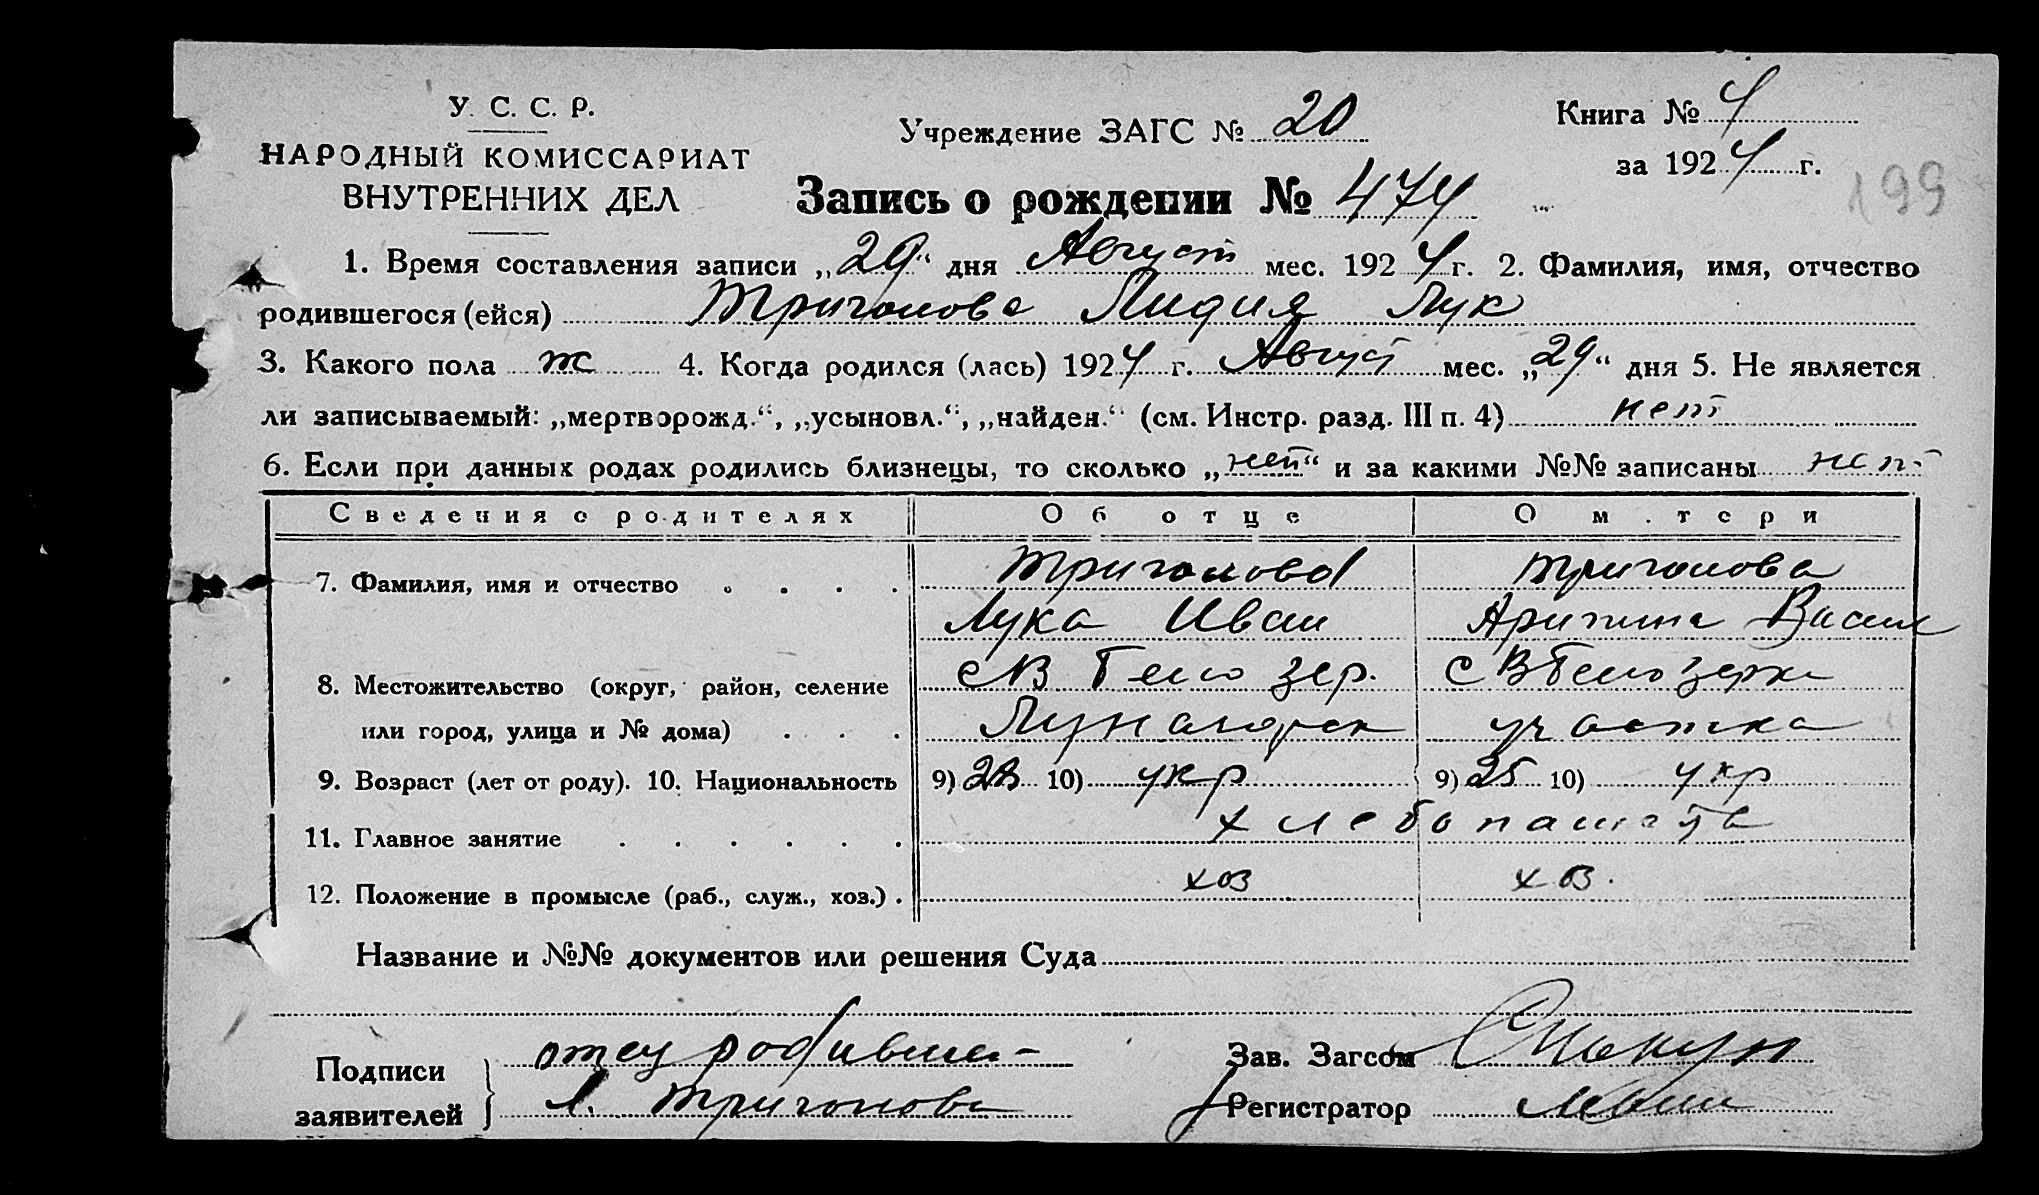 У. С. С. Р.
НАРОДНЫЙ КОМИССАРИАТ
ВНУТРЕННИХ ДЕЛ
Учреждение ЗАГС № 20
Книга № 4
за 1924 г.
199
Запись о рождении № 474
1. Время составления записи „29“ дня Август мес. 1924 г. 2. Фамилия, имя, отчество
родившегося (ейся) Триголова Лидия Лук
3. Какого пола ж 4. Когда родился (лась) 1924 г. Август мес. „29“ дня 5. Не является
ли записываемый: „мертворожд.“, „усыновл.“, „найден.“ (см. Инстр. разд. III п. 4) нет
6. Если при данных родах родились близнецы, то сколько „нет“ и за какими №№ записаны нет
Сведения о родителях Об отце О м.тери
7. Фамилия, имя и отчество Триголова Триголова
Лука Иван Арипина Васил
8. Местожительство (округ, район, селение с В Белозер. с В Белозерка
или город, улица и № дома) участка
9. Возраст (лет от роду). 10. Национальность 9) 28 10) укр 9) 25 10) укр
11. Главное занятие хлебопашетв
12. Положение в промысле (раб., служ., хоз.) хоз хоз.
Название и №№ документов или решения Суда
Подписи
заявителей
отец родивше-
Л. Тригонова
Зав. Загсом
Регистратор